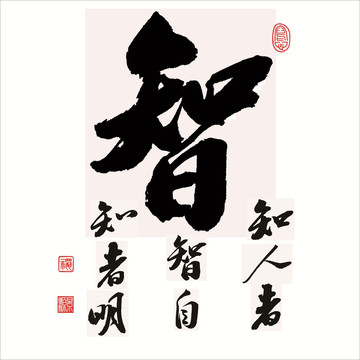 智
知人者
智自
知者明